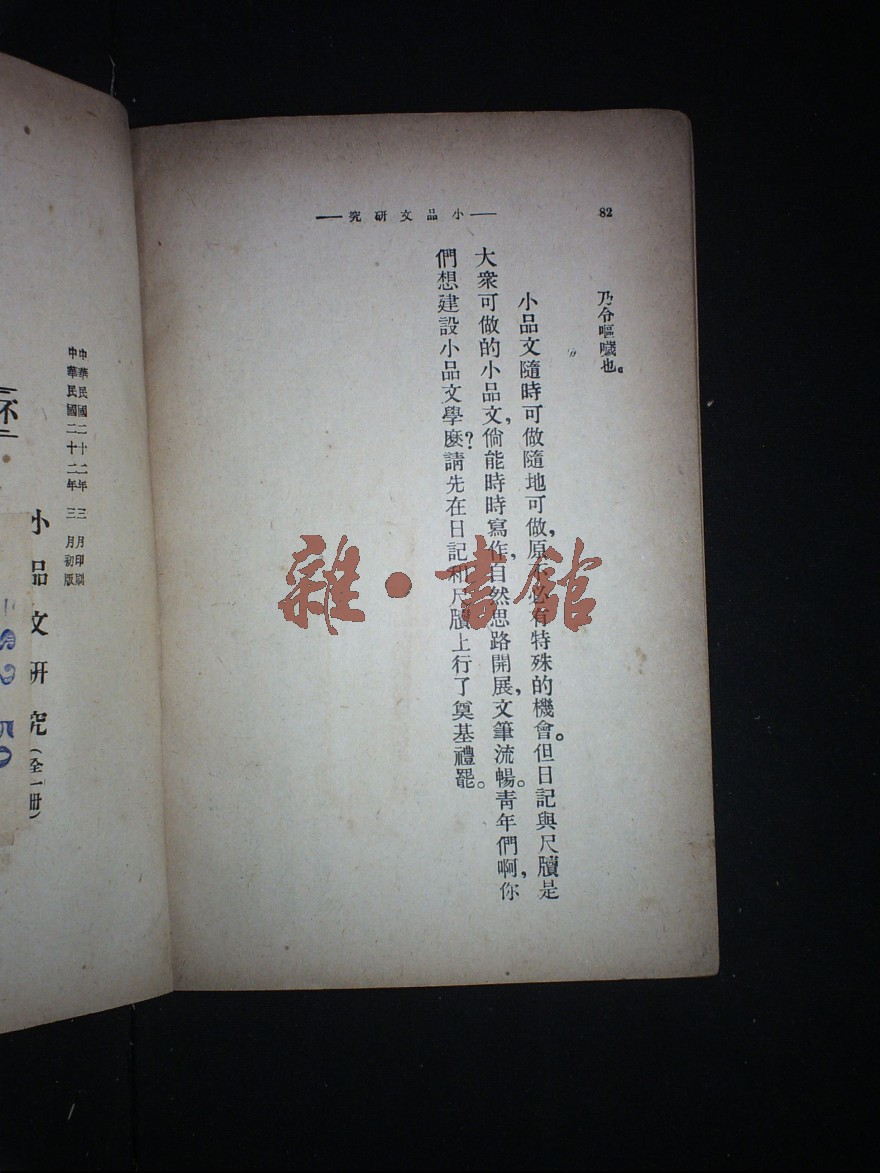 82
——小品文研究——
乃令嘔噦也。
小品文隨時可做隨地可做，原不必有特殊的機會。但日記與尺牘是
大衆可做的小品文，倘能時時寫作，自然思路開展，文筆流暢。靑年們啊，你
們想建設小品文學麽？請先在日記和尺牘上行了奠基禮罷。
雜·書館
中華民國二十二年三月印刷
中華民國二十二年三月初版
小品文研究（全一册）